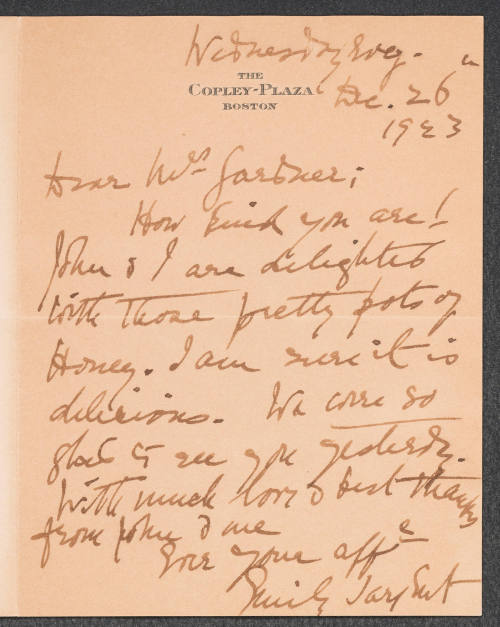 Wednesday Evg.
THE
COPLEY-PLAZA
BOSTON
Dec. 26th
1923
Dear Mrs Gardner;
How kind you are!
John & I are delighted
with those pretty pots of
Honey. I am sure it is
delicious. We were so
glad to see you yesterday.
With much love & best thanks
from John & me
Ever your affte
Emily Sargent